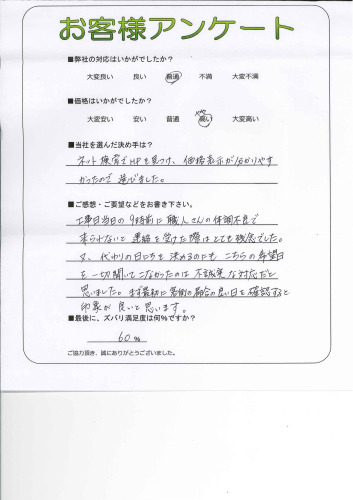 お客様アンケート
■弊社の対応はいかがでしたか?
大変良い 良い 普通 不満 大変不満
■価格はいかがでしたか?
やや
大変安い 安い 普通 高い 大変高い
■当社を選んだ決め手は?
ネット検索でHPを見つけ、価格表示が分かりやす
かったので選びました。
■ご感想・ご要望などをお書き下さい。
工事日当日の9時前に職人さんの体調不良で
来られないと連絡を受けた際はとても残念でした。
又、代わりの日にちを決めるのにも こちらの希望日
を一切聞いてこなかったのは不誠実な対応だと
思いました。まず最初に客側の都合の良い日を確認すると
印象が良いと思います。
■最後に、ズバリ満足度は何%ですか?
60%
ご協力頂き、誠にありがとうございました。